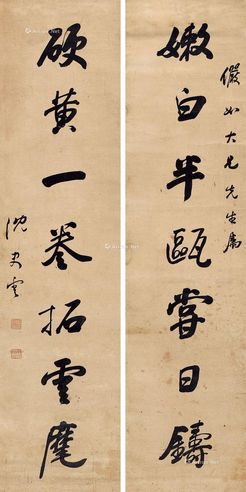 儼如大兄先生屬
嫩白半甌嘗日鑄
硬黃一卷拓雲麾
沈史雲